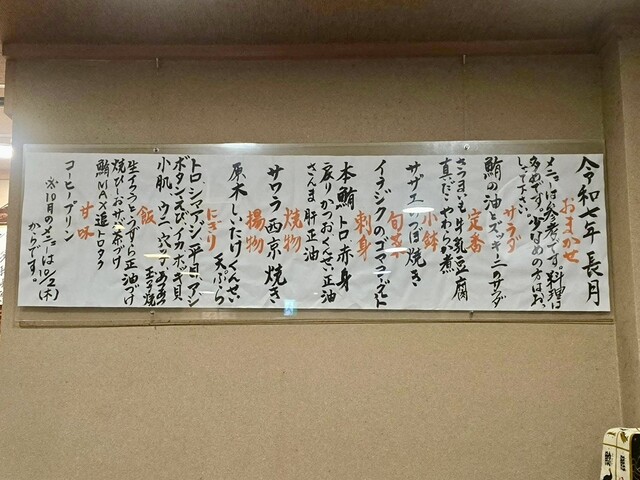 令和七年 長月
おまかせ
メニューは参考です。料理は
多めです。少なめの方はお、
して下さい。
サラダ
鮪の油とズッキーニのサラダ
定番
さつまいも牛乳豆腐
真だこやわらか煮
小鉢
サザエのつぼ焼き
旬菜
イチジクのゴマヨーグルト
刺身
本鮪トロ赤身
戻りかつおくんせい正油
さんま 肝正油
焼物
サワラ西京焼き
揚物
原木しいたけくんせい
天ぷら
にぎり
トロ シマアジ 平目 アジ
ボタンえび イカ ホッキ貝
小肌 ウニ 穴子 玉子焼
飯
生イクラとうずら正油づけ
焼びーおサバ茶づけ
鮪MAX進トロタク
甘味
コーヒープリン
※10月のメニューは10/2(木)
からです。